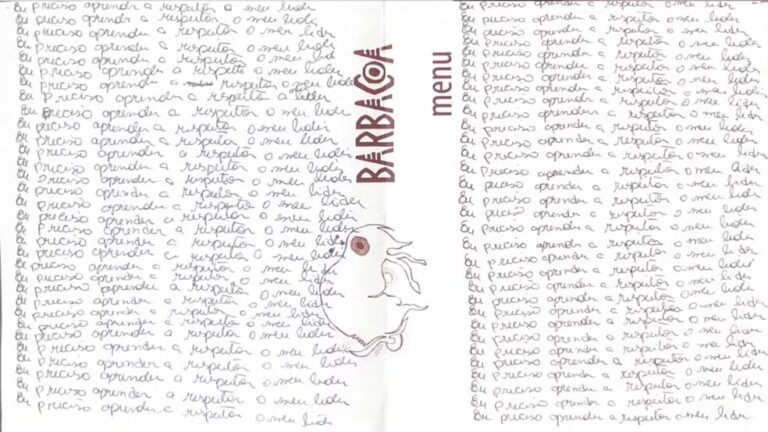 Eu preciso aprender a respeitar o meu lider
Eu preciso aprender a respeitar o meu lider
Eu preciso aprender a respeitar o meu lider
Eu preciso aprender a respeitar o meu lider
Eu preciso aprender a respeitar o meu lider
Eu preciso aprender a respeitar o meu lider
Eu preciso aprender a respeitar o meu lider
Eu preciso aprender a respeitar a lider
Eu preciso aprender a respeitar o meu lider
Eu preciso aprender a respeitar o meu lider
Eu preciso aprender a respeitar o meu lider
Eu preciso aprender a respeitar o meu lider
Eu preciso aprender a respeitar o meu lider
Eu preciso aprender a respeitar o meu lider
Eu preciso aprender a respeitar o meu lider
Eu preciso aprender a respeitar o meu lider
Eu preciso aprender a respeitar o meu lider
Eu preciso aprender a respeitar o meu lider
Eu preciso aprender a respeitar o meu lider
Eu preciso aprender a respeitar o meu lider
Eu preciso aprender a respeitar o meu lider
Eu preciso aprender a respeitar o meu lider
Eu preciso aprender a respeitar o meu lider
Eu preciso aprender a respeitar o meu lider
Eu preciso aprender a respeitar o meu lider
Eu preciso aprender a respeitar o meu lider
Eu preciso aprender a respeitar o meu lider
Eu preciso aprender a respeitar o meu lider
Eu preciso aprender a respeitar o meu lider
Eu preciso aprender a respeitar o meu lider
Eu preciso aprender a respeitar o meu lider
Eu preciso aprender a respeitar o meu lider
BARBACOA
menu
Eu preciso aprender a respeitar o meu lider
Eu preciso aprender a respeitar o meu lider
Eu preciso aprender a respeitar o meu lider
Eu preciso aprender a respeitar o meu lider
Eu preciso aprender a respeitar o meu lider
Eu preciso aprender a respeitar o meu lider
Eu preciso aprender a respeitar o meu lider
Eu preciso aprender a respeitar o meu lider
Eu preciso aprender a respeitar o meu lider
Eu preciso aprender a respeitar o meu lider
Eu preciso aprender a respeitar o meu lider
Eu preciso aprender a respeitar o meu lider
Eu preciso aprender a respeitar o meu lider
Eu preciso aprender a respeitar o meu lider
Eu preciso aprender a respeitar o meu lider
Eu preciso aprender a respeitar o meu lider
Eu preciso aprender a respeitar o meu lider
Eu preciso aprender a respeitar o meu lider
Eu preciso aprender a respeitar o meu lider
Eu preciso aprender a respeitar o meu lider
Eu preciso aprender a respeitar o meu lider
Eu preciso aprender a respeitar o meu lider
Eu preciso aprender a respeitar o meu lider
Eu preciso aprender a respeitar o meu lider
Eu preciso aprender a respeitar o meu lider
Eu preciso aprender a respeitar o meu lider
Eu preciso aprender a respeitar o meu lider
Eu preciso aprender a respeitar o meu lider
Eu preciso aprender a respeitar o meu lider
Eu preciso aprender a respeitar o meu lider
Eu preciso aprender a respeitar o meu lider